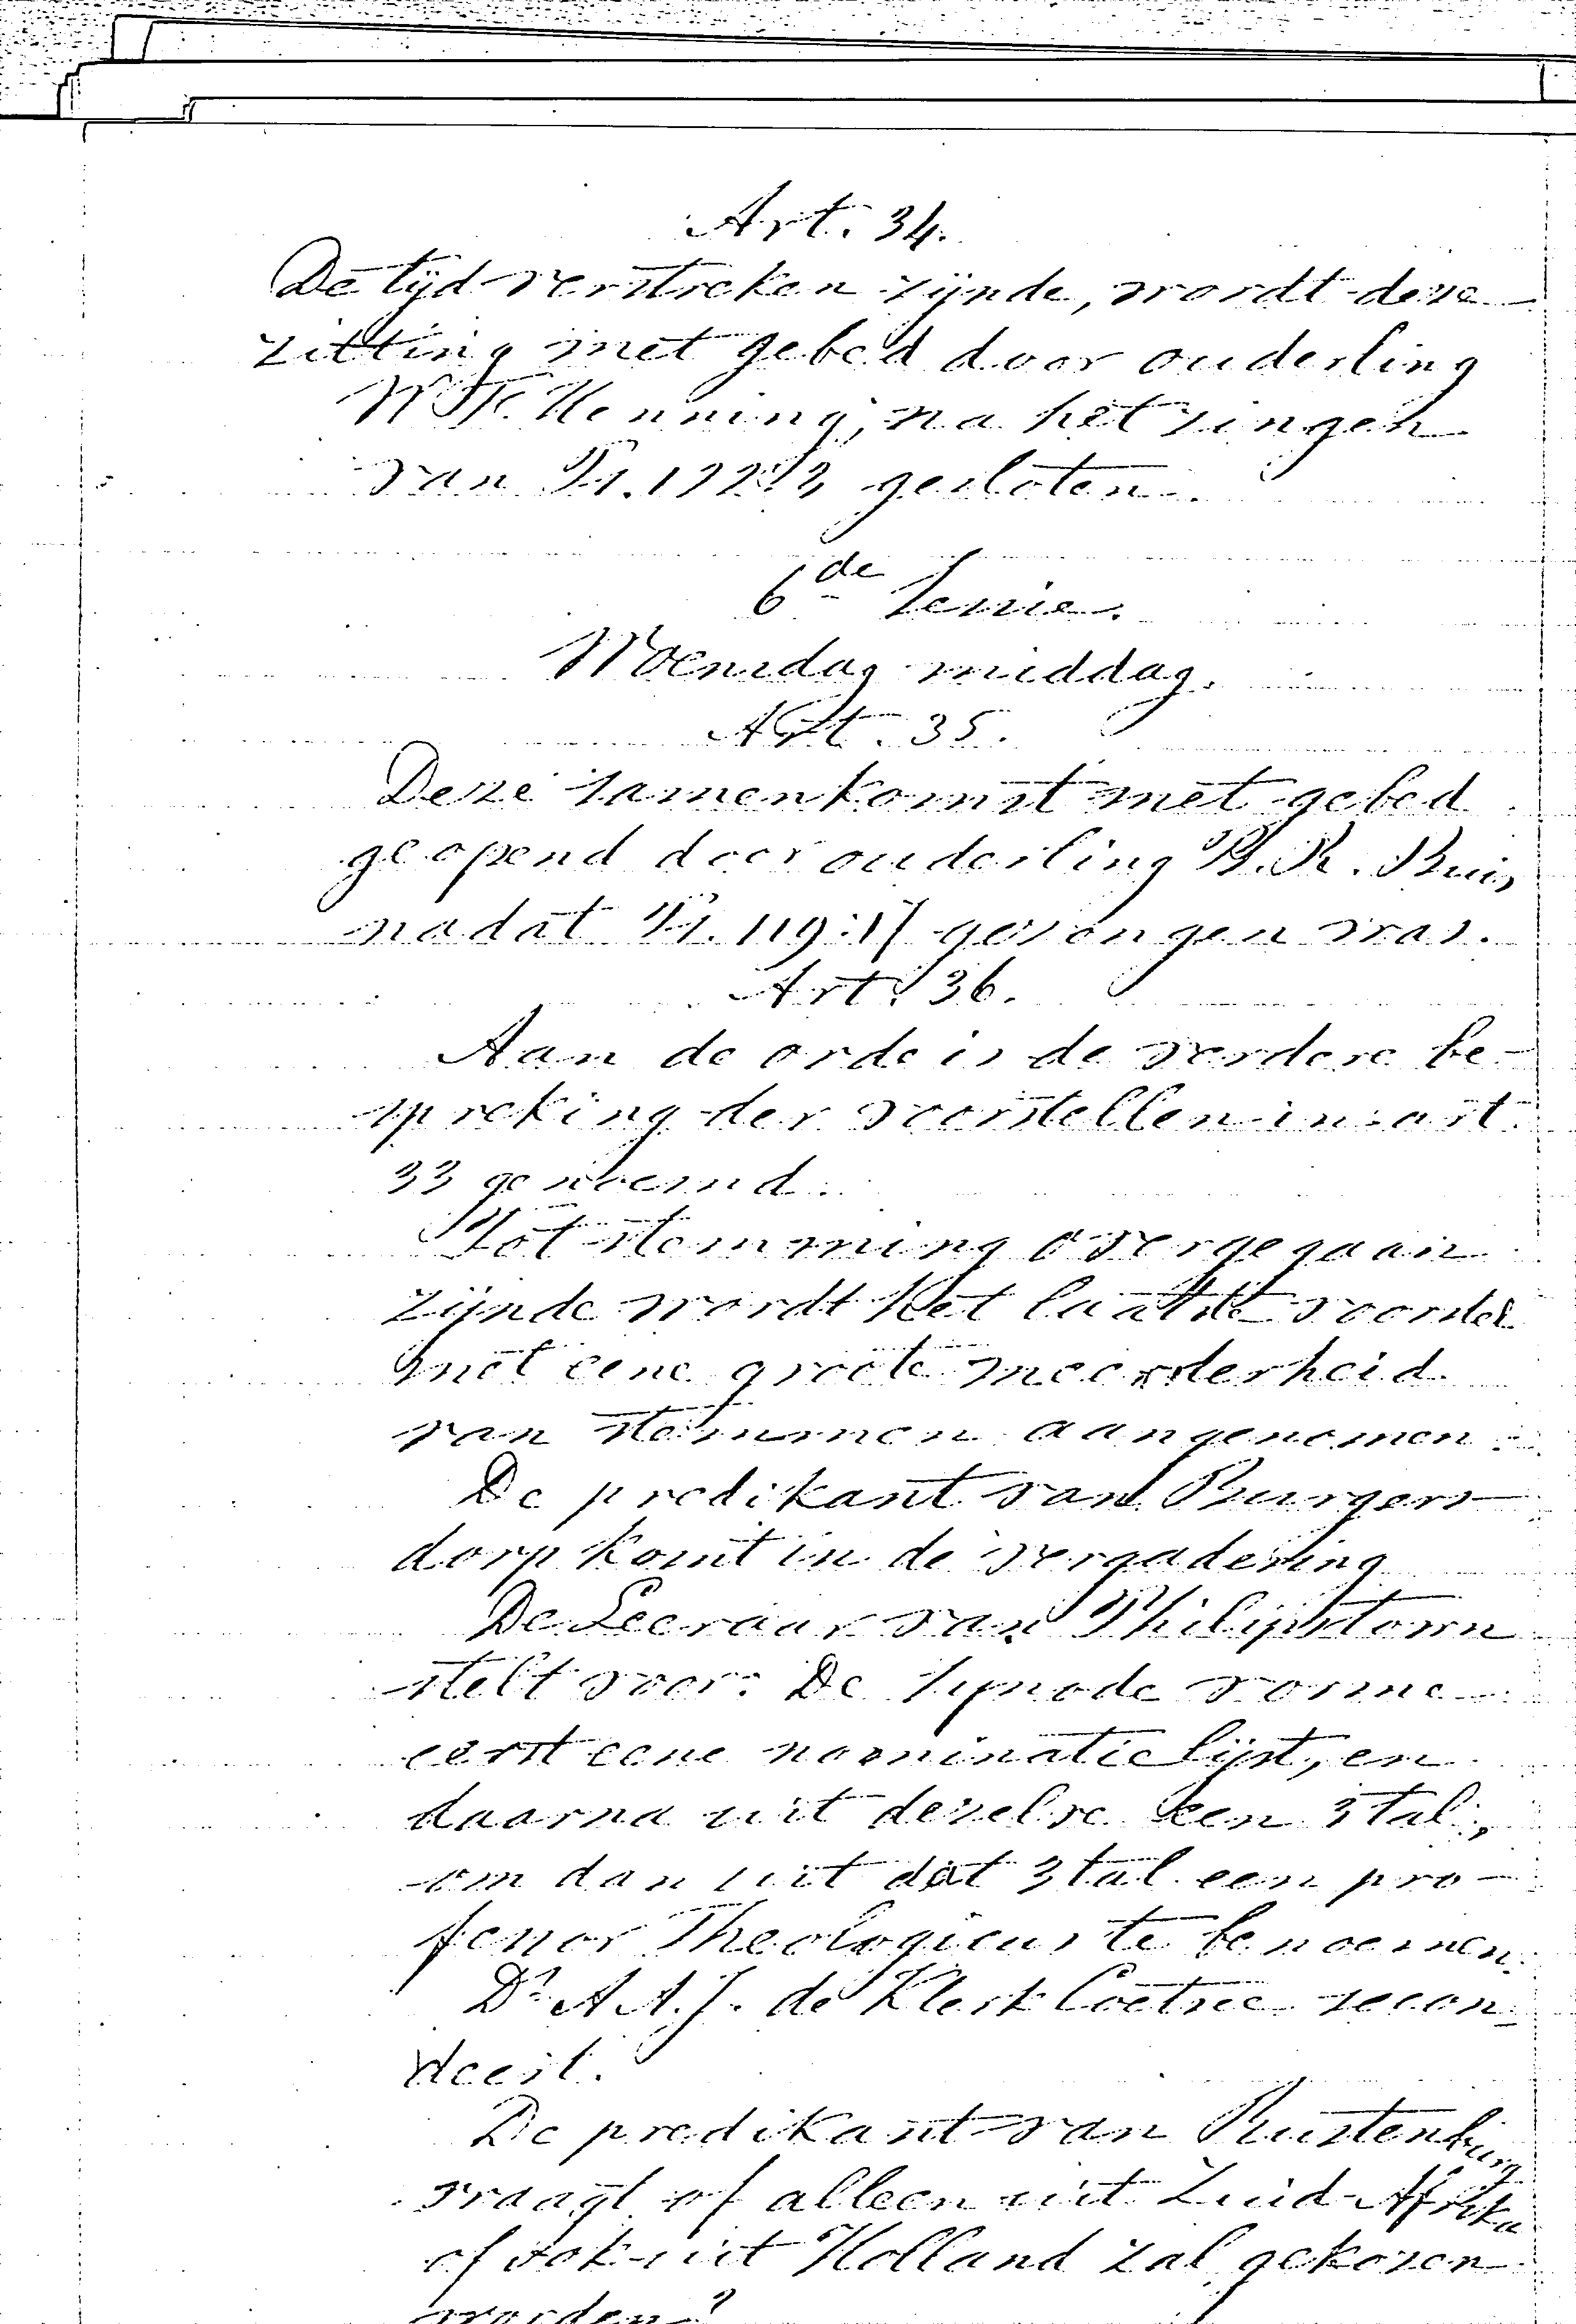 Art. 34.
De tijd verstreken zijnde, wordt deze
zitting met gebed door ouderling
Henning, na het zingen
van Ps. gesloten.
6de Sessie.
Woensdag middag.
Art. 35.
Deze samenkomst met gebed
geopend door ouderling Buis,
nadat Ps. 119: gezongen was.
Art. 36.
Aan de orde is de verdere be-
spreking der voorstellen in art.
33 genoemd.
Tot stemming overgegaan
zijnde wordt het laatste voorstel
met eene groote meerderheid
van stemmen aangenomen.
De predikant van Burgers-
dorp komt in de vergadering
De Leeraar van Philipstown
stelt voor: De Synode vorme
eerst eene nominatielijst, en
daarna uit dezelve een 3tal,
om dan uit dat 3tal een pro-
fessor Theologicus te benoemen.
Ds A A. J. de Klerk Coetzee secon-
deert.
De predikant van Rustenburg
vraagt of alleen uit Zuid-Afrika
of ook uit Holland zal gekozen
worden?